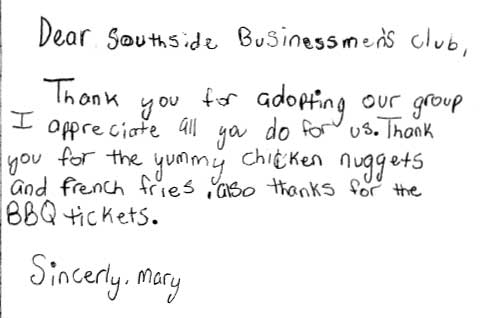 Dear Southside Businessmen's club,
Thank you for adopting our group
I appreciate all you do for us. Thank
you for the yummy chicken nuggets
and french fries, also thanks for the
BBQ tickets.
Sincerly, Mary